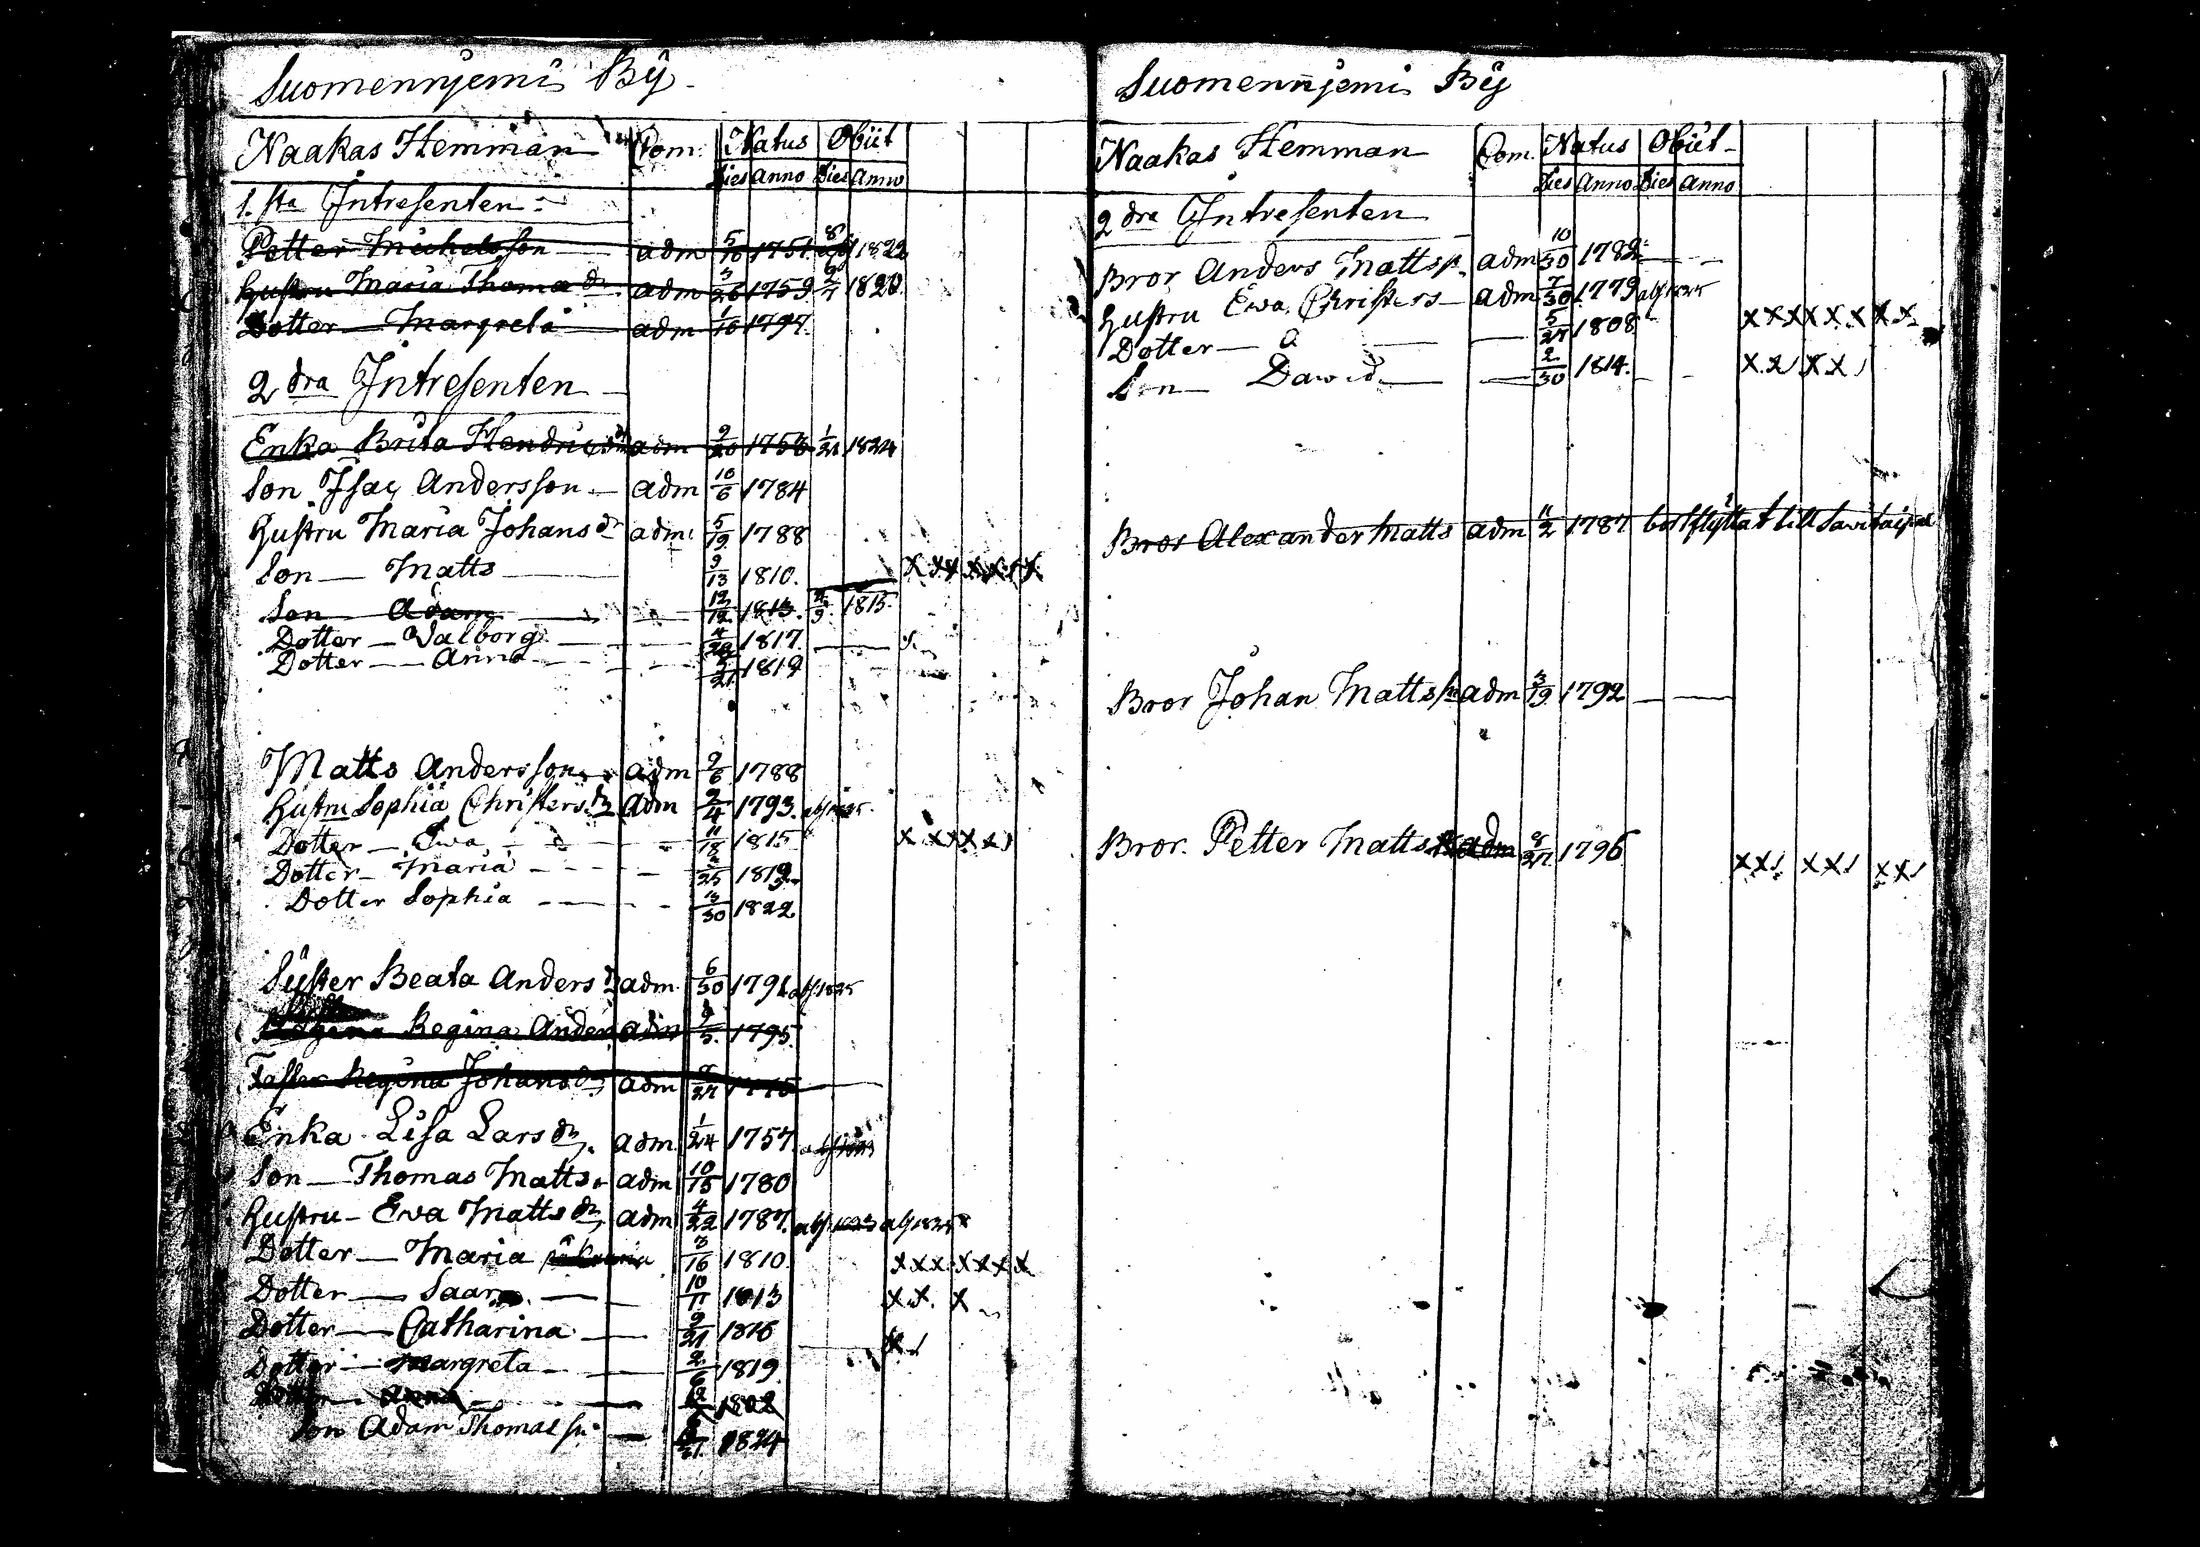 Suomennjemi Bÿ
Naakas Hemman Com: Natus Obiit
Dies Anno Dies Anno
1. sta Intressenten
Petter Michelsson adm 5/10 1751 1822
Hustru Maria Thomæ dr adm 3/26 1759 2/7 1820
Dotter Margreta adm 1/10 1797
2 dra Intressenten
Enka Brita Hendricsdr adm 9/20 1753 1/21 1824
Son Isac Andersson adm 10/6 1784
Hustru Maria Johans dr adm 5/19 1788
Son Matts 9/13 1810 x x x x x x x
Son Adam 12/12 1813 4/9 1815
Dotter Valborg 4/28 1817
Dotter Anna 5/21 1819
Matts Andersson adm 9/6 1788
Hustru Sophia Christersdr adm 9/4 1793 abs 1825
Dotter Ewa 11/18 1815 x x x x x
Dotter Maria 2/25 1819
Dotter Sophia 3/30 1822
Syster Beata Anders dr adm 6/30 1791 abs 1825
Regina Anders adm 1795
Faster Regina Johansdr adm
Enka Lisa Lars dr adm 1/24 1757
Son Thomas Matts adm 10/15 1780
Hustru Ewa Matts dr adm 4/22 1787 abs 1823 abs 1825
Dotter Maria 3/16 1810 x x x x x x x
Dotter Saara 10/11 1813 x x x
Dotter Catharina 9/21 1816
Dotter Margreta 2/6 1819
Dotter 12 1822
Son Adam Thomas sn 1824
Suomennjemi Bÿ
Naakas Hemman Com. Natus Obiit
Dies Anno Dies Anno
2 dra Intressenten
Bror Anders Mattss. adm 10/30 1782
Hustru Ewa Christers adm 7/30 1779 abs 1825
Dotter 5/27 1808 x x x x x x x x
Son Dawid 2/30 1814 x x x x
Bror Alexander Matts adm 11/2 1787 bortflyttat till Savitaipal
Bror Johan Mattssn adm 3/19 1792
Bror. Petter Matts adm 8/27 1796 x x x x x x